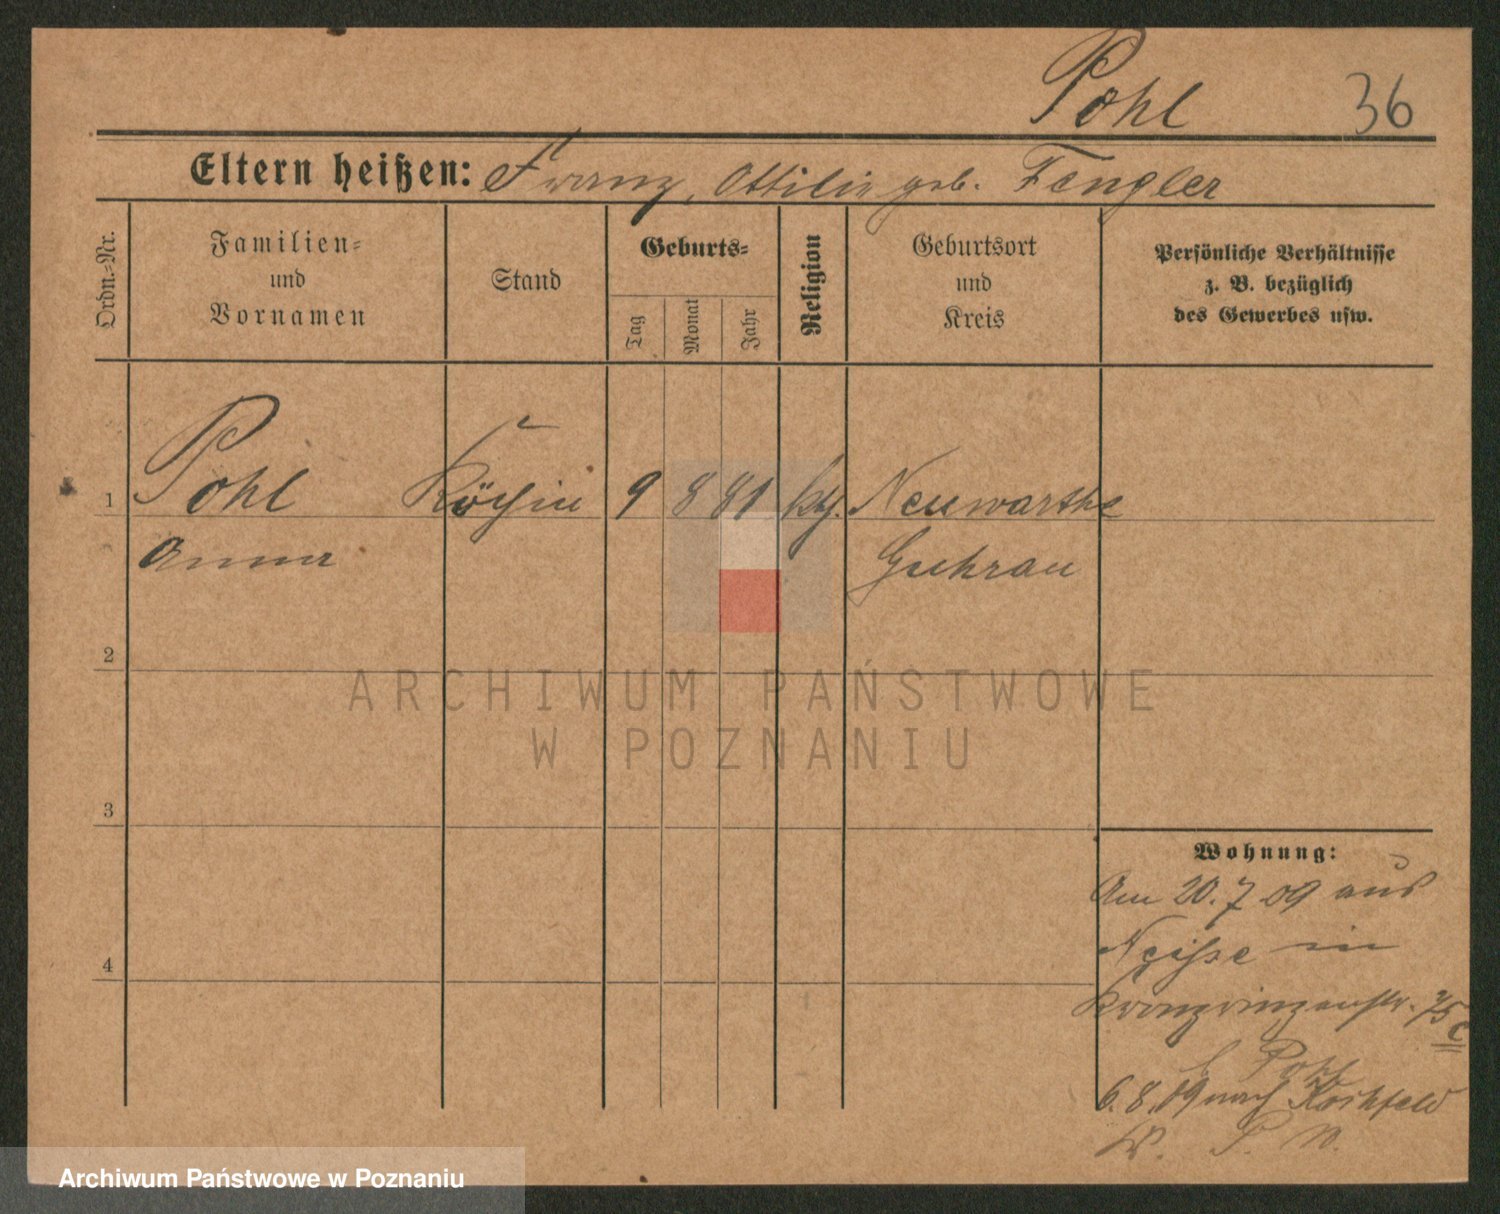 Pohl 36
Eltern heißen: Franz, Ottilie geb. Fengler
Ordn.-Nr.
Familien-
und
Vornamen
Stand
Geburts-
Tag
Monat
Jahr
Religion
Geburtsort
und
Kreis
Persönliche Verhältnisse
z. B. bezüglich
des Gewerbes usw.
1 Pohl Köchin 9 8 81 kth. Neuwarthe
Anna Guhrau
2
ARCHIWUM PAŃSTWOWE
W POZNANIU
3
4
Wohnung:
Am 20.7 09 aus
Neisse in
Kronprinzenstr.
6.8.09 nach
Archiwum Państwowe w Poznaniu